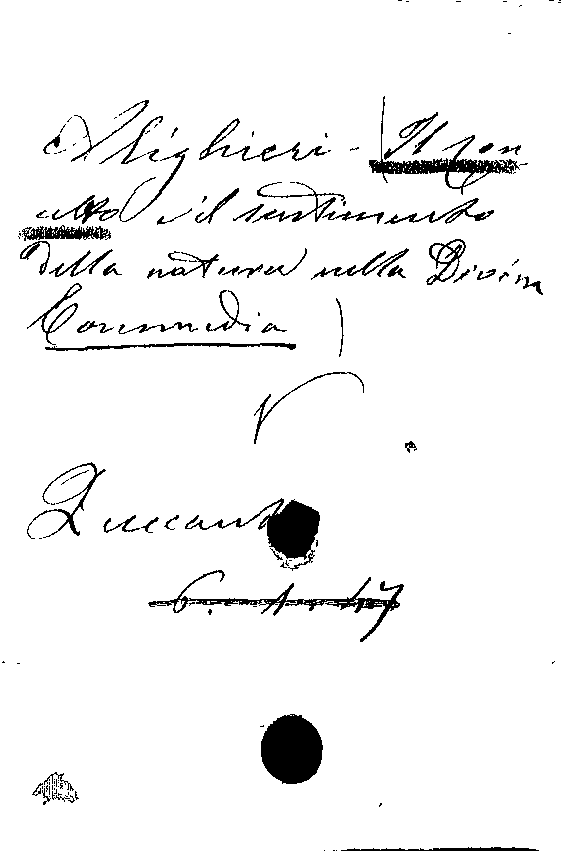 Alighieri - (Il con
cetto e il sentimento
della natura nella Divina
Commedia)
V
Zuccante
6. 1. 47